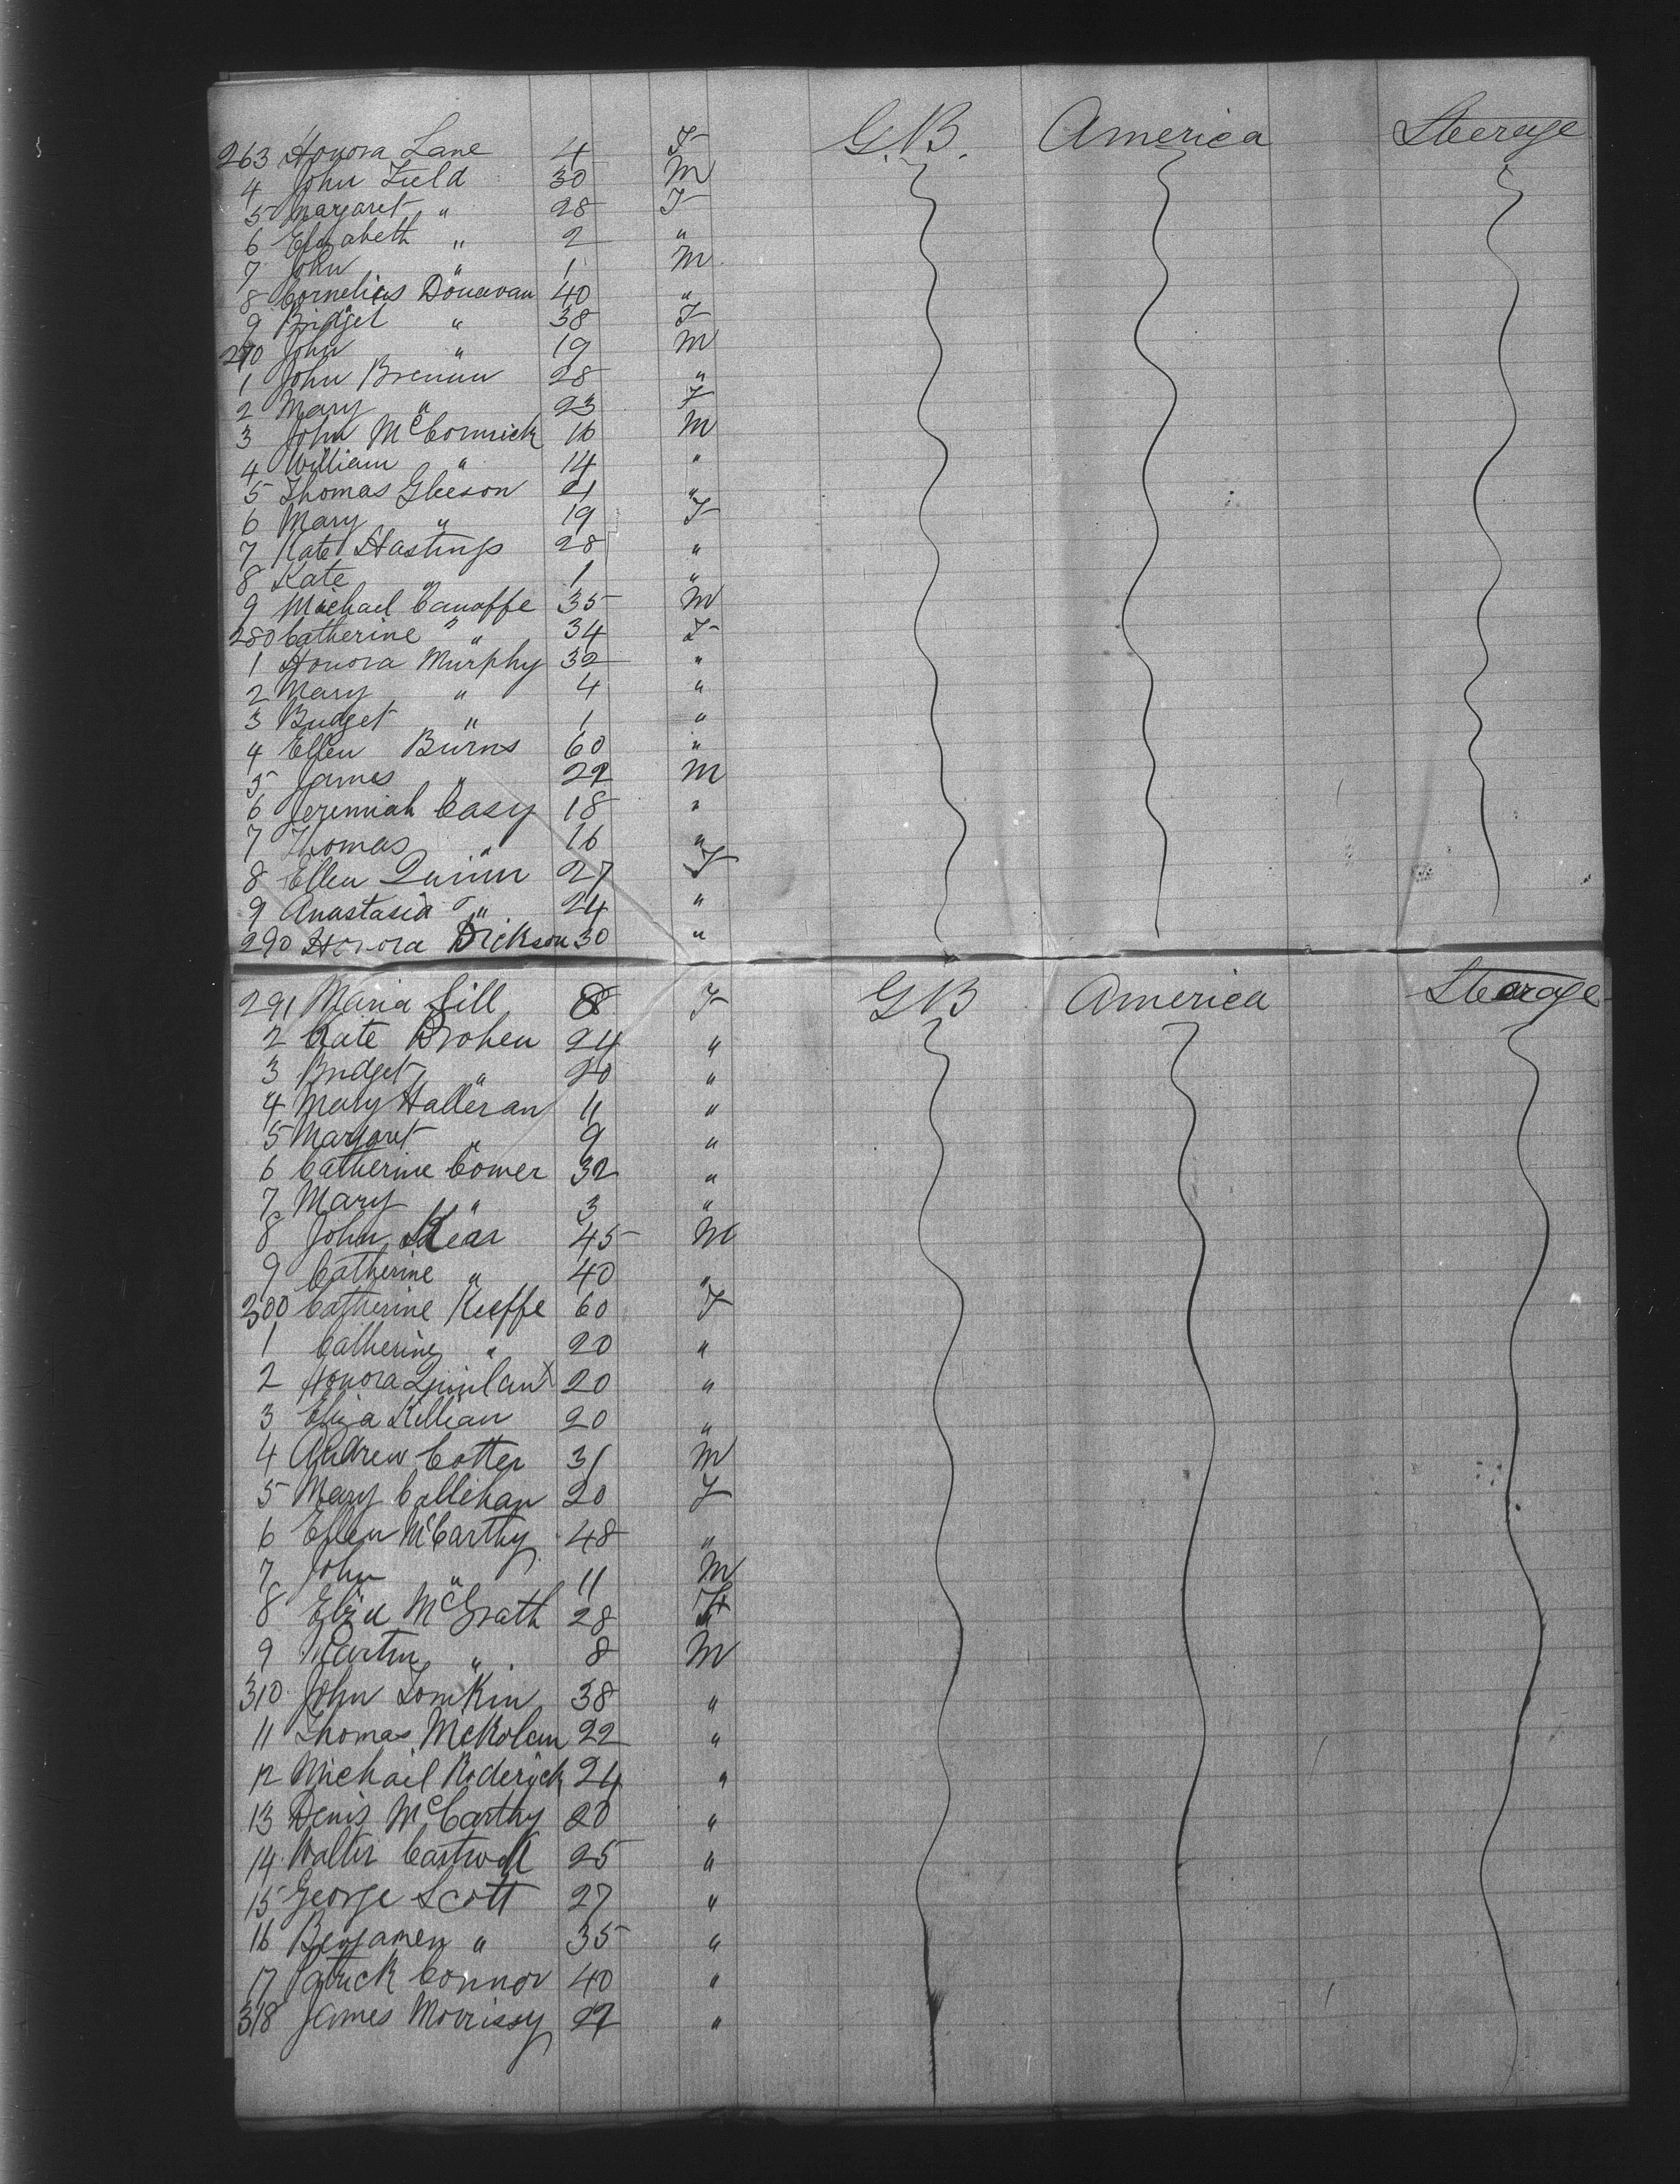 263 Honora Lane 4 F G.B. America Steerage
4 John Field 30 M
5 Margaret " 28 F
6 Elizabeth " 2 "
7 John " 1 M
8 Cornelius Donavan 40 "
9 Bridget " 38 F
270 John " 19 M
1 John Brennan 28 "
2 Mary " 23 F
3 John McCormick 16 M
4 William " 14 "
5 Thomas Gleeson 21 "
6 Mary " 19 F
7 Kate Hastings 28 "
8 Kate " 1 "
9 Michael Canaffe 35 M
280 Catherine " " 34 F
1 Honora Murphy 32 "
2 Mary " 4 "
3 Bridget " 1 "
4 Ellen Burns 60 "
5 James " 22 M
6 Jeremiah Casy 18 "
7 Thomas " 16 "
8 Ellen Quinn 27 F
9 Anastasia " 24 "
290 Honora Dickson 30 "
291 Maria Gill 8 F G B America Steerage
2 Kate Brohen 24 "
3 Bridget " 20 "
4 Mary Halleran 11 "
5 Margaret " 9 "
6 Catherine Comer 32 "
7 Mary " 3 "
8 John Kear 45 M
9 Catherine " 40 "
300 Catherine Keeffe 60 F
1 Catherine " 20 "
2 Honora Quinlan x 20 "
3 Eliza Killian 20 "
4 Andrew Cotter 31 M
5 Mary Callihan 20 F
6 Ellen McCarthy 48 "
7 John " 11 M
8 Eliza McGrath 28 F
9 Martin " 8 M
310 John Tomkin 38 "
11 Thomas 22 "
12 Michail Roderick 24 "
13 Denis McCarthy 20 "
14 Walter 25 "
15 George Scott 27 "
16 Benjamen " 35 "
17 Patrick Connor 40 "
318 James Morrissy 22 "